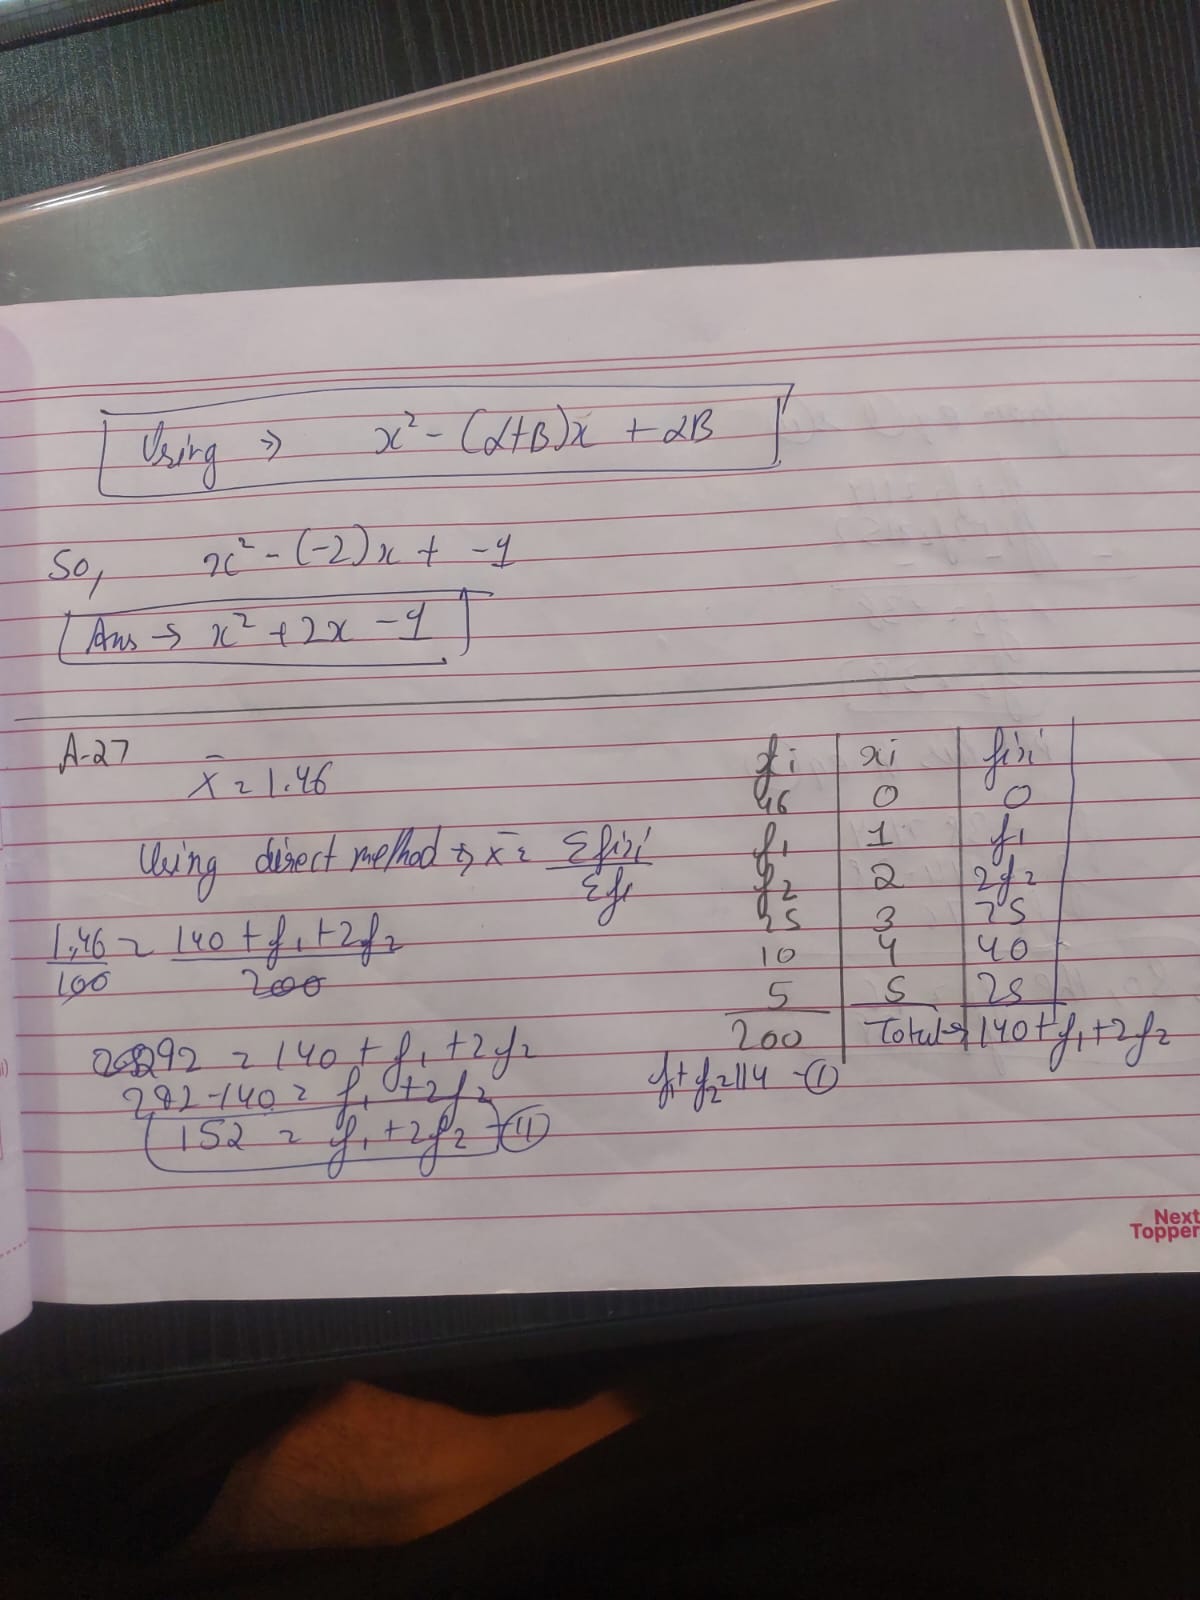 Using → x² - (α+B)x + αB
So, x² - (-2)x + -9
Ans → x² + 2x - 9
A-27
x̄ = 1.46
Using direct method → x̄ = Σfixi / Σfi
1.46 / 100 = 140 + f₁ + 2f₂ / 200
292 = 140 + f₁ + 2f₂
292 - 140 = f₁ + 2f₂
152 = f₁ + 2f₂ - (II)
fi | xi | fixi
46 | 0 | 0
f₁ | 1 | f₁
f₂ | 2 | 2f₂
25 | 3 | 75
10 | 4 | 40
5 | 5 | 25
200 | Total → | 140 + f₁ + 2f₂
f₁ + f₂ = 114 - (I)
Next
Topper